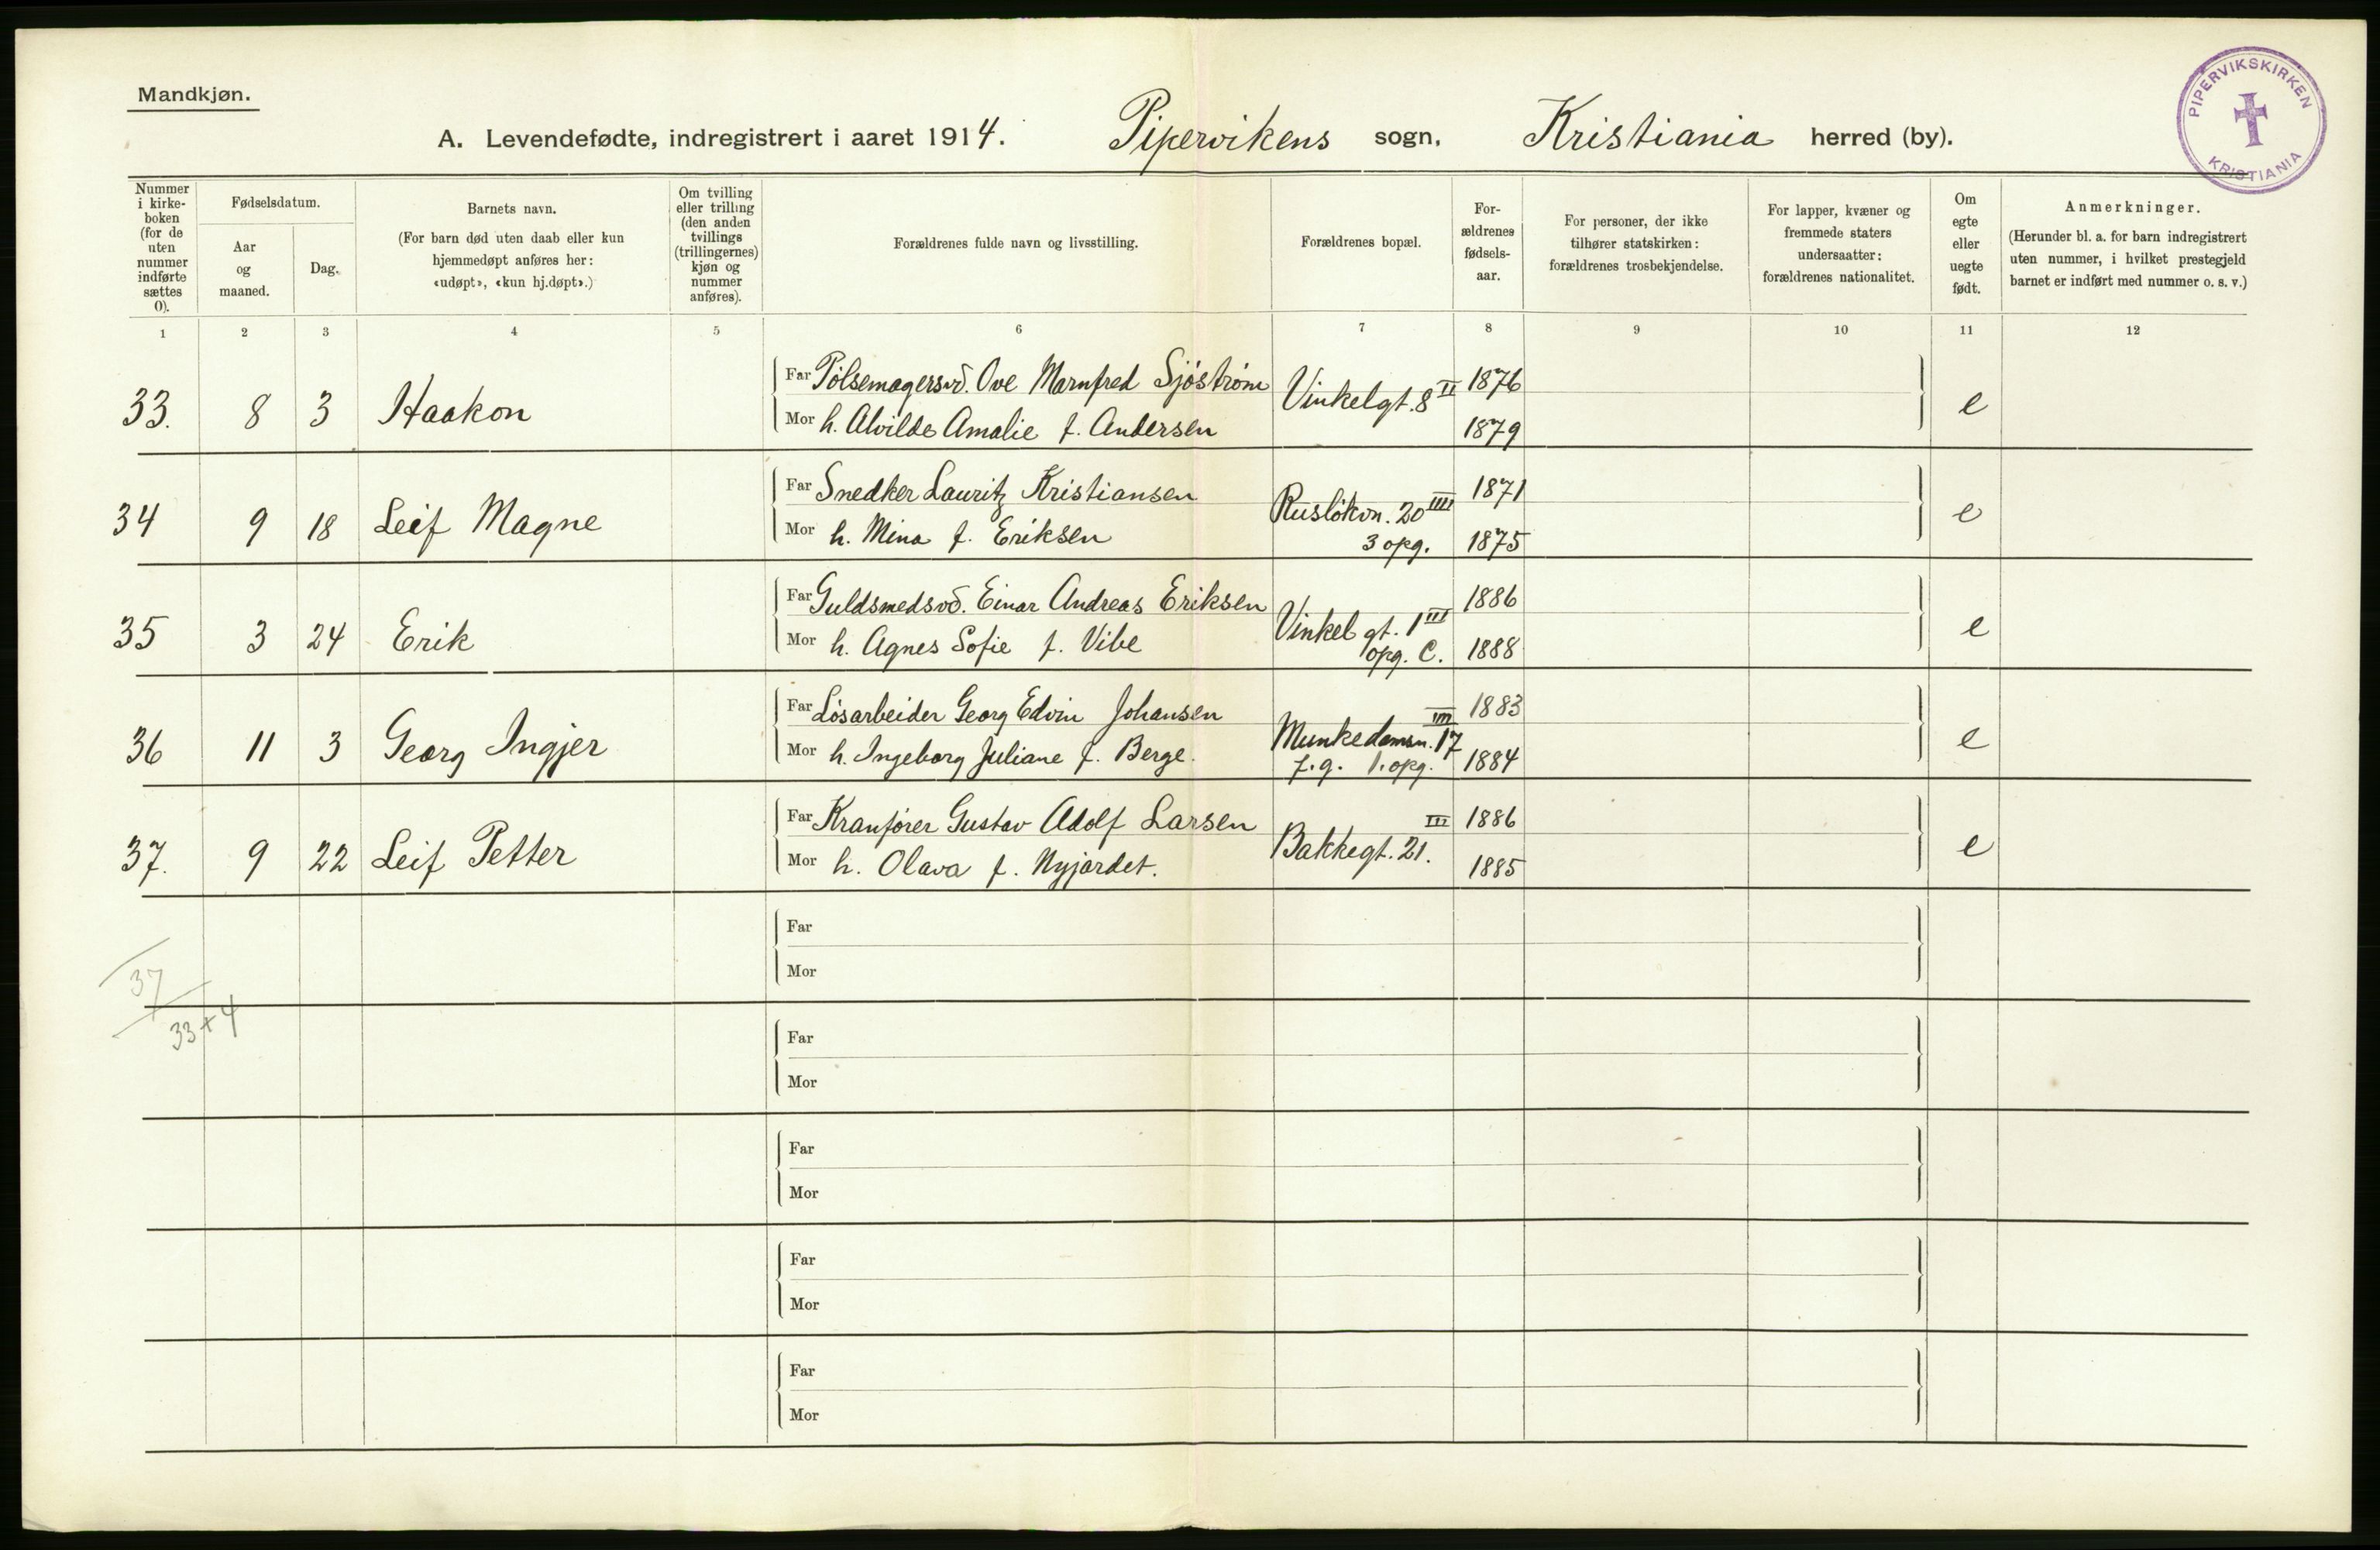 Mandkjøn.
A. Levendefødte, indregistrert i aaret 1914. Pipervikens sogn, Kristiania herred (by).
PIPERVIKSKIRKEN
KRISTIANIA
Nummer i kirke- boken (for de uten nummer indførte sættes 0).
Fødselsdatum.
Aar og maaned.
Dag.
Barnets navn.
(For barn død uten daab eller kun hjemmedøpt anføres her: «udøpt», «kun hj.døpt».)
Om tvilling eller trilling (den anden tvillings (trillingernes) kjøn og nummer anføres).
Forældrenes fulde navn og livsstilling.
Forældrenes bopæl.
For- ældrenes fødsels- aar.
For personer, der ikke tilhører statskirken: forældrenes trosbekjendelse.
For lapper, kvæner og fremmede staters undersaatter: forældrenes nationalitet.
Om egte eller uegte født.
Anmerkninger.
(Herunder bl. a. for barn indregistrert uten nummer, i hvilket prestegjeld barnet er indført med nummer o. s. v.)
1 2 3 4 5 6 7 8 9 10 11 12
Far Pølsemagersvd. Ove Marnfred Sjöström 1876
33. 8 3 Haakon Vinkelgt. 8 II e
Mor h. Alvilde Amalie f. Andersen 1879
Far Snedker Lauritz Kristiansen 1871
34 9 18 Leif Magne Rusløkvn. 20 IIII e
Mor h. Mina f. Eriksen 3 opg. 1875
Far Guldsmedsvd. Einar Andreas Eriksen 1886
35 3 24 Erik Vinkel gt. 1 III e
Mor h. Agnes Sofie f. Vibe opg. C. 1888
Far Løsarbeider Georg Edvin Johansen 1883
36 11 3 Georg Ingjer Munkedamsv. 17 III e
Mor h. Ingeborg Juliane f. Berge. f.g. 1. opg. 1884
Far Kranfører Gustav Adolf Larsen III 1886
37. 9 22 Leif Petter Bakkegt. 21. e
Mor h. Olava f. Nyjordet. 1885
Far
37
Mor
33+4
Far
Mor
Far
Mor
Far
Mor
Far
Mor